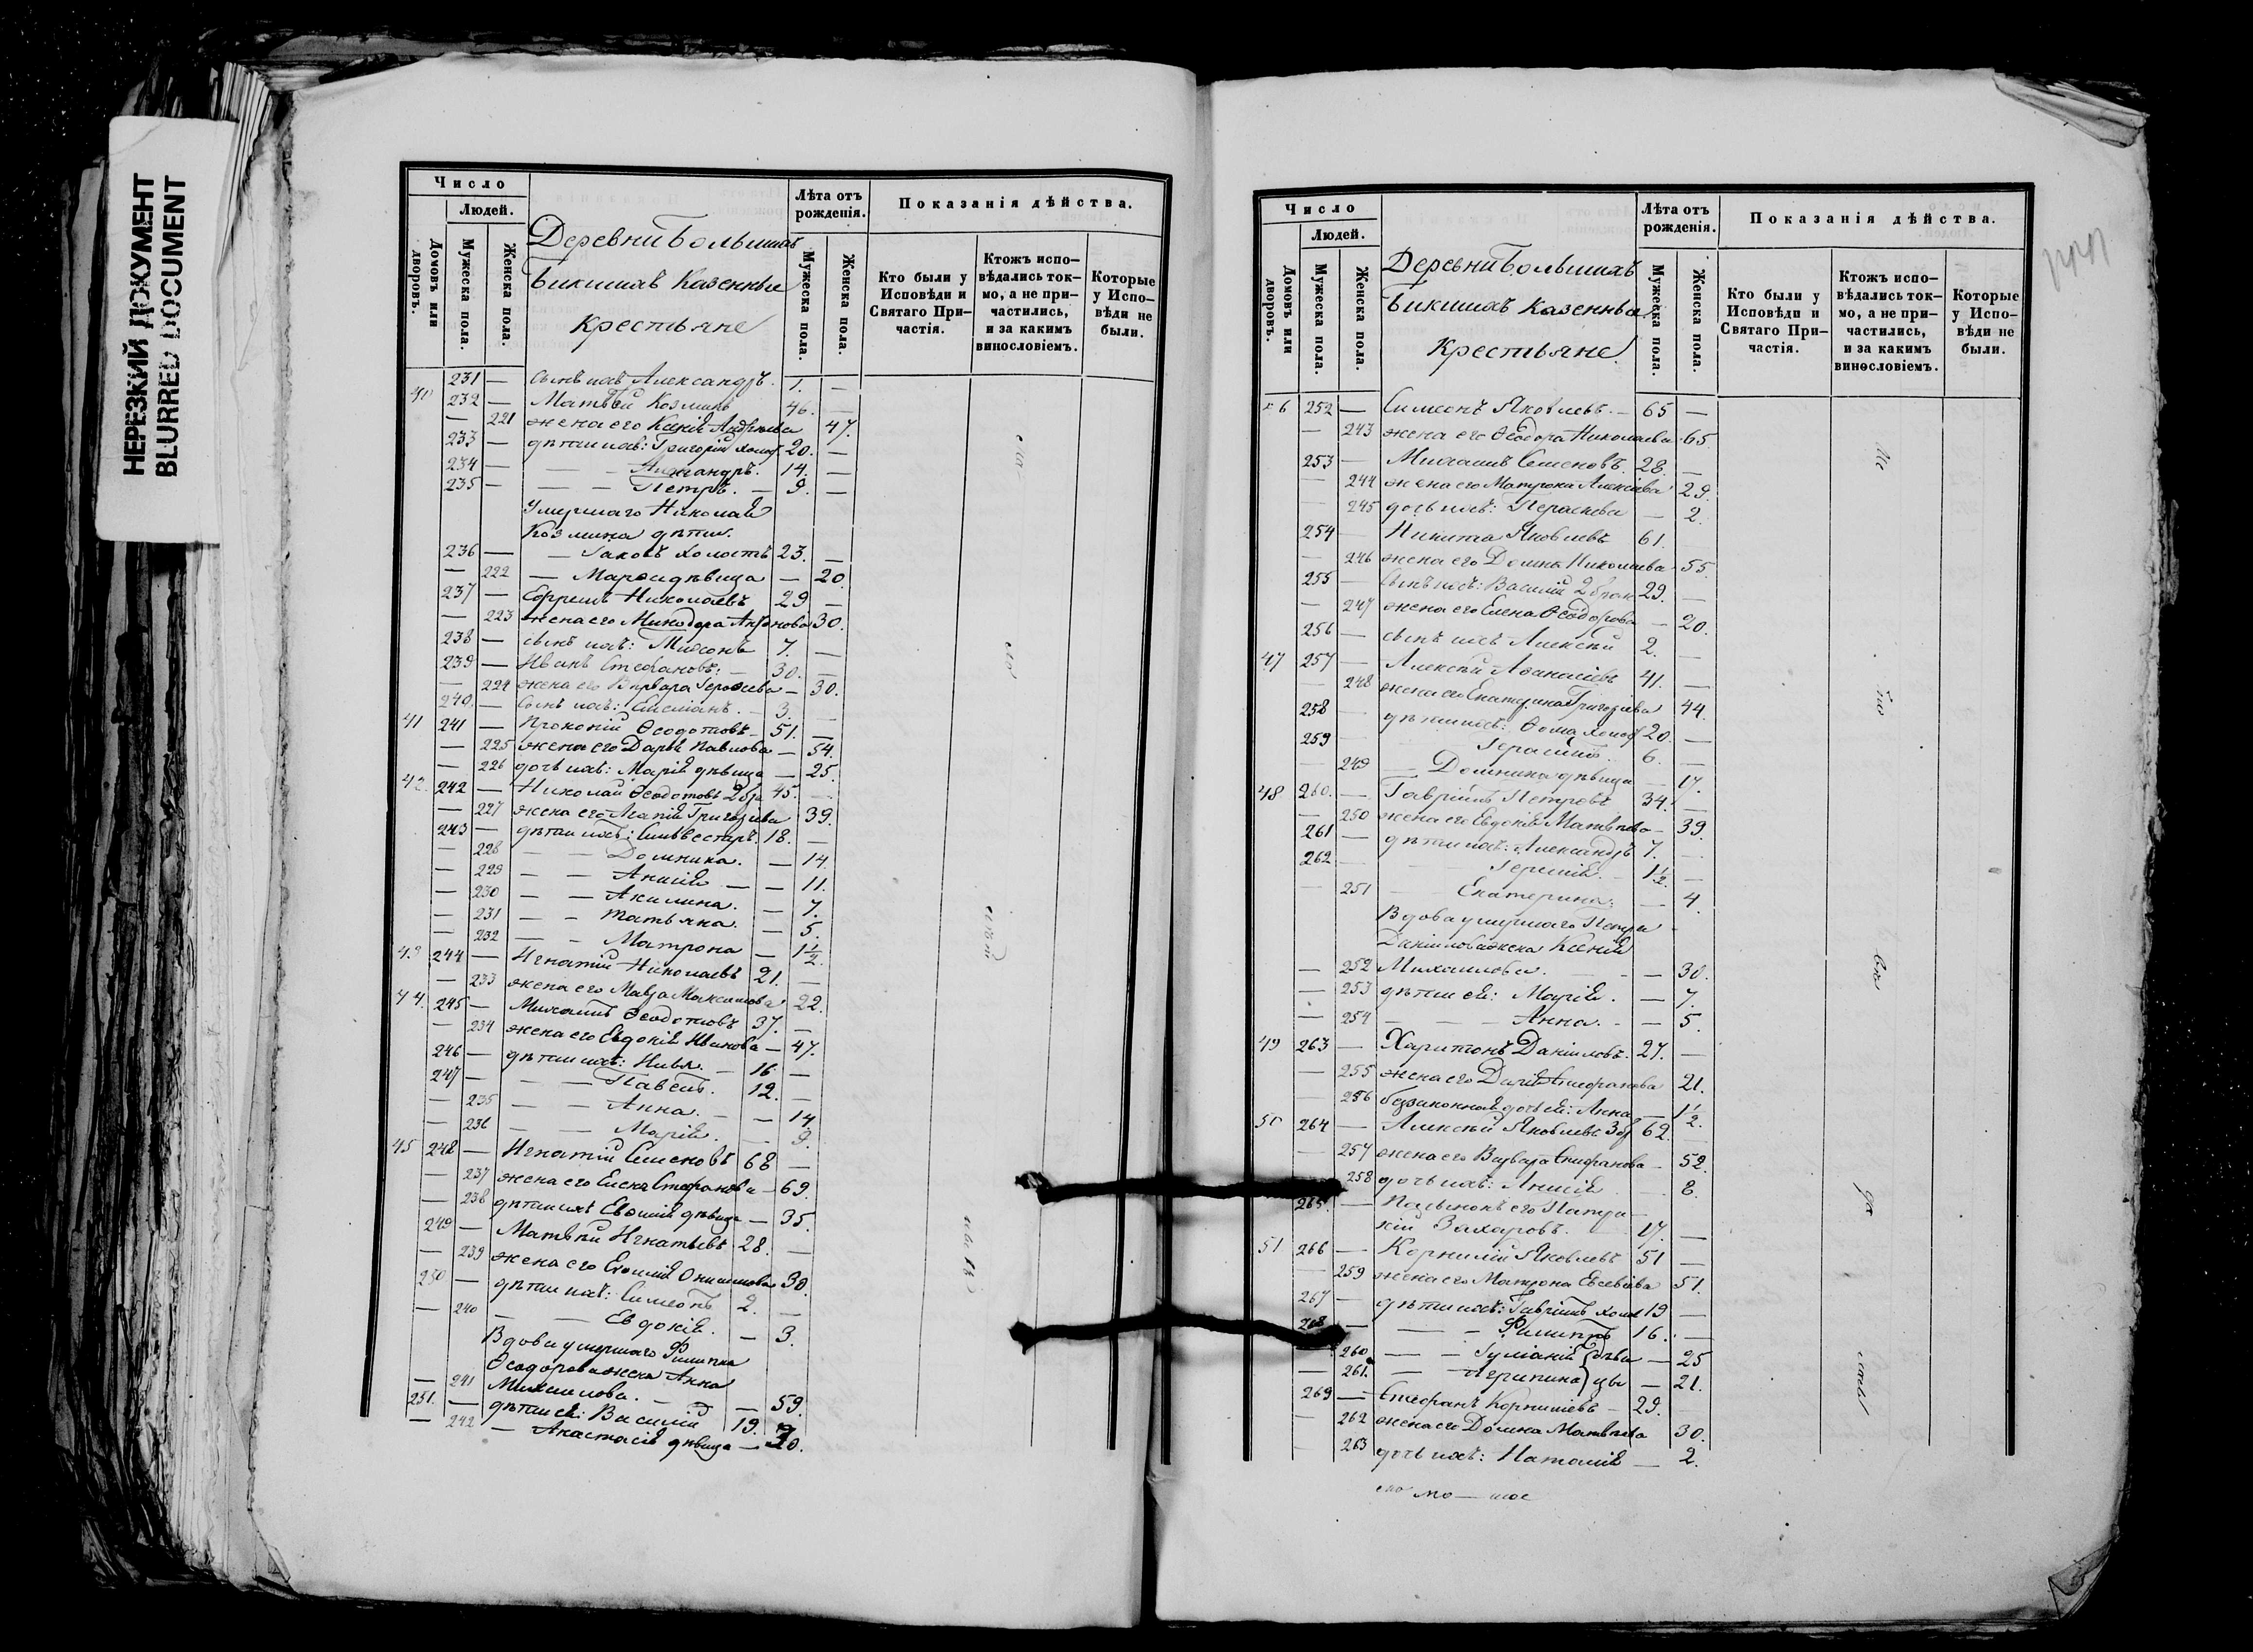 НЕРЕЗКИЙ ДОКУМЕНТ
BLURRED DOCUMENT
Число
Людей.
Домовъ или дворовъ.
Мужеска пола.
Женска пола.
Деревни Большихъ
Бикшихъ Казенные
крестьяне
Лѣта отъ рожденія.
Мужеска пола.
Женска пола.
Показанія дѣйства.
Кто были у Исповѣди и Святаго Причастія.
Ктожъ исповѣдались токмо, а не причастились, и за какимъ винословіемъ.
Которые у Исповѣди не были.
231 — сынъ ихъ Александръ. 1. —
40 232 — Матвѣй Козминъ 46. —
— 221 жена его Ксенія Андреева 47.
233 — дѣти ихъ: Григорій холост 20. —
234 — — — Александръ. 14. —
235 — — — Петръ. — 9. —
Умершаго Николая
Козмина дѣти.
236 — — Іаковъ холостъ 23. —
— 222 — Марѳа дѣвица — 20.
237 — Ефремъ Николаевъ 29 —
— 223 жена его Минодора Антонова 30.
238 — сынъ ихъ: Михаилъ 7. —
239 — Иванъ Стефановъ: — 30. —
— 224 жена его Варвара — 30.
240. — Сынъ ихъ: — 3. —
41 241 — Прокопій Ѳеодотовъ — 51. —
— 225 жена его Дарья Павлова — 54.
— 226 дочь ихъ: Марія дѣвица — 25.
42 242 — Николай Ѳеодотовъ 2 бра 45. —
— 227 жена его Агапія Григорьева 39.
243 — дѣти ихъ: Сильвестръ. 18. —
— 228 — — Домника. — 14
— 229 — — Анисія — — 11.
— 230 — — Акилина. — 7.
— 231 — — Татьяна. — 5.
— 232 — — Матрона — 1½.
43 244 — Игнатій Николаевъ 21. —
— 233 жена его Мавра Максимова 22.
44. 245 — Михаилъ Ѳеодотовъ 37. —
— 234 жена его Евдокія Иванова — 47.
246 — дѣти ихъ: — 16 —
247 — — — Павелъ. 12. —
— 235 — — Анна. — — 14
— 236 — — Марія. — 9.
45 248 — Игнатій Семеновъ 68 —
— 237 жена его Елена Стефанова — 69.
— 238 дѣти ихъ Евфимія дѣвица — 35.
249 — Матвѣй Игнатьевъ 28. —
— 239 жена его Евфимія Онисимова 30.
250 — дѣти ихъ: Симеонъ 2. —
— 240 — — Евдокія. — 3.
Вдова умершаго Филиппа
Ѳеодорова жена Анна
— 241 Михаилова. — — 59.
251. — дѣти ея: Василій 19.
— 242 — Анастасія дѣвица — 20.
Число
Людей.
Домовъ или дворовъ.
Мужеска пола.
Женска пола.
Деревни Большихъ
Бикшихъ Казенные
Крестьяне.
Лѣта отъ рожденія.
Мужеска пола.
Женска пола.
Показанія дѣйства.
Кто были у Исповѣди и Святаго Причастія.
Ктожъ исповѣдались токмо, а не причастились, и за какимъ винословіемъ.
Которые у Исповѣди не были.
46 252 — Симеонъ Яковлевъ. — 65 —
— 243 жена его Ѳеодора Николаева 65.
253 — Михаилъ Семеновъ. 28. —
— 244 жена его Матрона Алексіева 29.
245 дочь ихъ: Параскева — 2.
254 — Никита Яковлевъ 61.
— 246 жена его Домна Николаева 55.
255 — Сынъ ихъ: Василій 2 брак 29. —
— 247 жена его Елена Ѳеодорова — 20.
256 — сынъ ихъ Алексѣй 2. —
47 257 — Алексѣй Аѳанасіевъ 41. —
— 248 жена его Екатерина Григорьева 44.
258 — дѣти ихъ: Ѳома холост 20. —
259 Герасимъ. 6. —
249 — Домника дѣвица — 17.
48 260. — Гавріилъ Петровъ 34. —
— 250 жена его Евдокія Матвѣева — 39.
261 — дѣти ихъ: Александръ 7. —
262 — — Іеремія. — 1½. —
— 251 — Екатерина. — 4.
Вдова умершаго Петра
Даніилова жена Ксенія
— 252 Михаилова. — — 30.
— 253 дѣти ея: Марія. — 7.
254 — — — Анна. — — 5.
49 263 — Харитонъ Даніиловъ. 27. —
— 255 жена его Дарія Стефанова 21.
256 беззаконная дочь ея: Анна — 1½.
50 264 — Алексѣй Яковлевъ 3 бр 62. —
— 257 жена его Варвара Епифанова — 52.
258 дочь ихъ: Анисія — 8.
265. — Пасынокъ его
Захаровъ. 17. —
51 266 — Корнилій Яковлевъ 51 —
— 259 жена его Матрона Евсевіева 51.
267 — дѣти ихъ: Гавріилъ холост 19 —
268 — — — Филиппъ 16. —
260 — — Іуліанія } дѣви — 25
— 261. — Агрипина } цы — 21.
269 — Стефанъ Корниліевъ — 29. —
— 262 жена его Домна Матвѣева 30.
— 263 дочь ихъ: Наталія — 2.